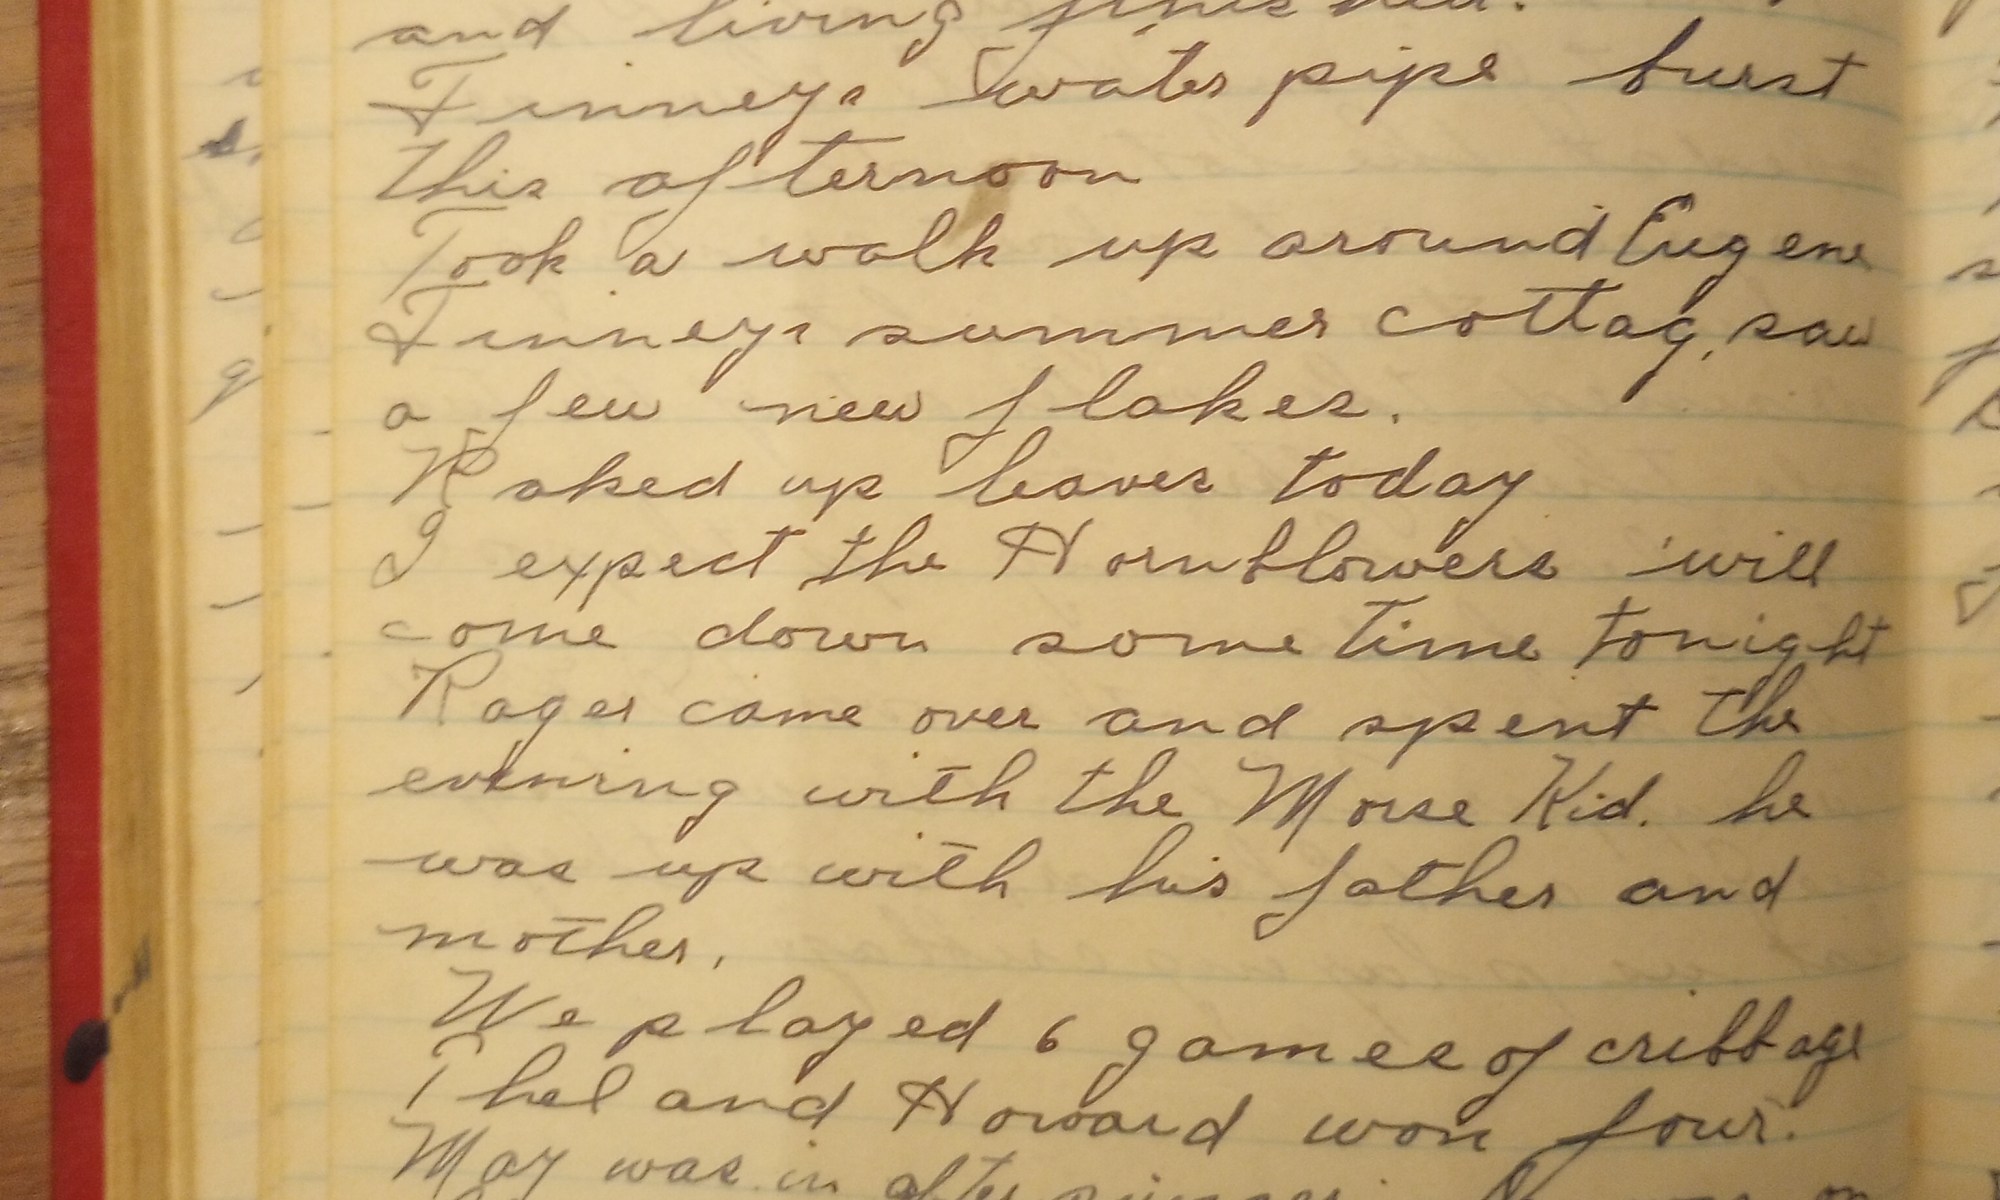 and living finished.
Finneys water pipe burst
this afternoon
Took a walk up around Eugene
Finneys summer cottag, saw
a few new flakes.
Raked up leaves today
I expect the Hornblowers will
come down some time tonight
Roger came over and spent the
evening with the Morse Kid. he
was up with his father and
mother.
We played 6 games of cribbage
Thel and Howard won four.
May was in after